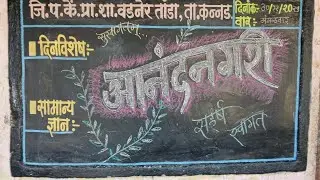 जि.प.कें.प्रा.शा.वडनेर तांडा, ता.कन्नड
दिनांक
वार: मंगळवार
सुस्वागतम्
दिनविशेष:-
आनंदनगरी
सामान्य
ज्ञान:-
सहर्ष
स्वागत